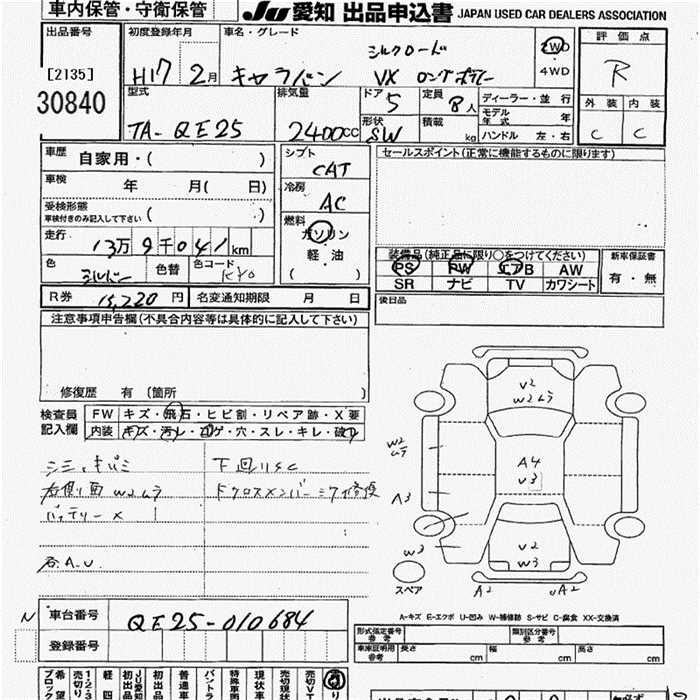 車内保管・守衛保管
JU愛知 出品申込書 JAPAN USED CAR DEALERS ASSOCIATION
出品番号
[2135]
30840
初度登録年月
H17 2月
車名・グレード
シルクロード
キャラバン VX ロングボディー
2WD
4WD
評価点
R
外装 内装
C C
型式
TA-QE25
排気量
2400cc
ドア 5
定員 8人
形状
SW
積載 kg
ディーラー・並行
モデル年式 年
ハンドル 左・右
車歴 自家用・( )
車検 年 月( 日)
受検形態
車検付きのみ記入して下さい ( )
走行 13万9千041km
色 シルバー
色替
色コード KY0
シフト
CAT
冷房
AC
燃料
ガソリン
軽油
( )
セールスポイント(正常に機能するものに限ります)
装備品(純正品に限り○をつけてください)
PS PW エアB AW
SR ナビ TV カワシート
新車保証書
有・無
R券 15,220円
名変通知期限 月 日
後日品
注意事項申告欄(不具合内容等は具体的に記入して下さい)
修復歴 有 (箇所 )
検査員
記入欄
FW キズ・飛石・ヒビ割・リペア跡・X要
内装 キズ・汚レ・コゲ・穴・スレ・キレ・破レ
シミ、キバミ
右側面 W2ムラ
バッテリー×
下回りSC
V2
W2ムラ
W2
ムラ
A4
V3
A3
W3
V2
W3
スペア
A2
A2
A-キズ E-エクボ U-凹み W-補修跡 S-サビ C-腐食 XX-交換済
N
車台番号 QE25-010684
登録番号
形式指定番号
参考
類別区分番号
参考
車庫証明用
参考
長さ cm
幅 cm
高さ cm